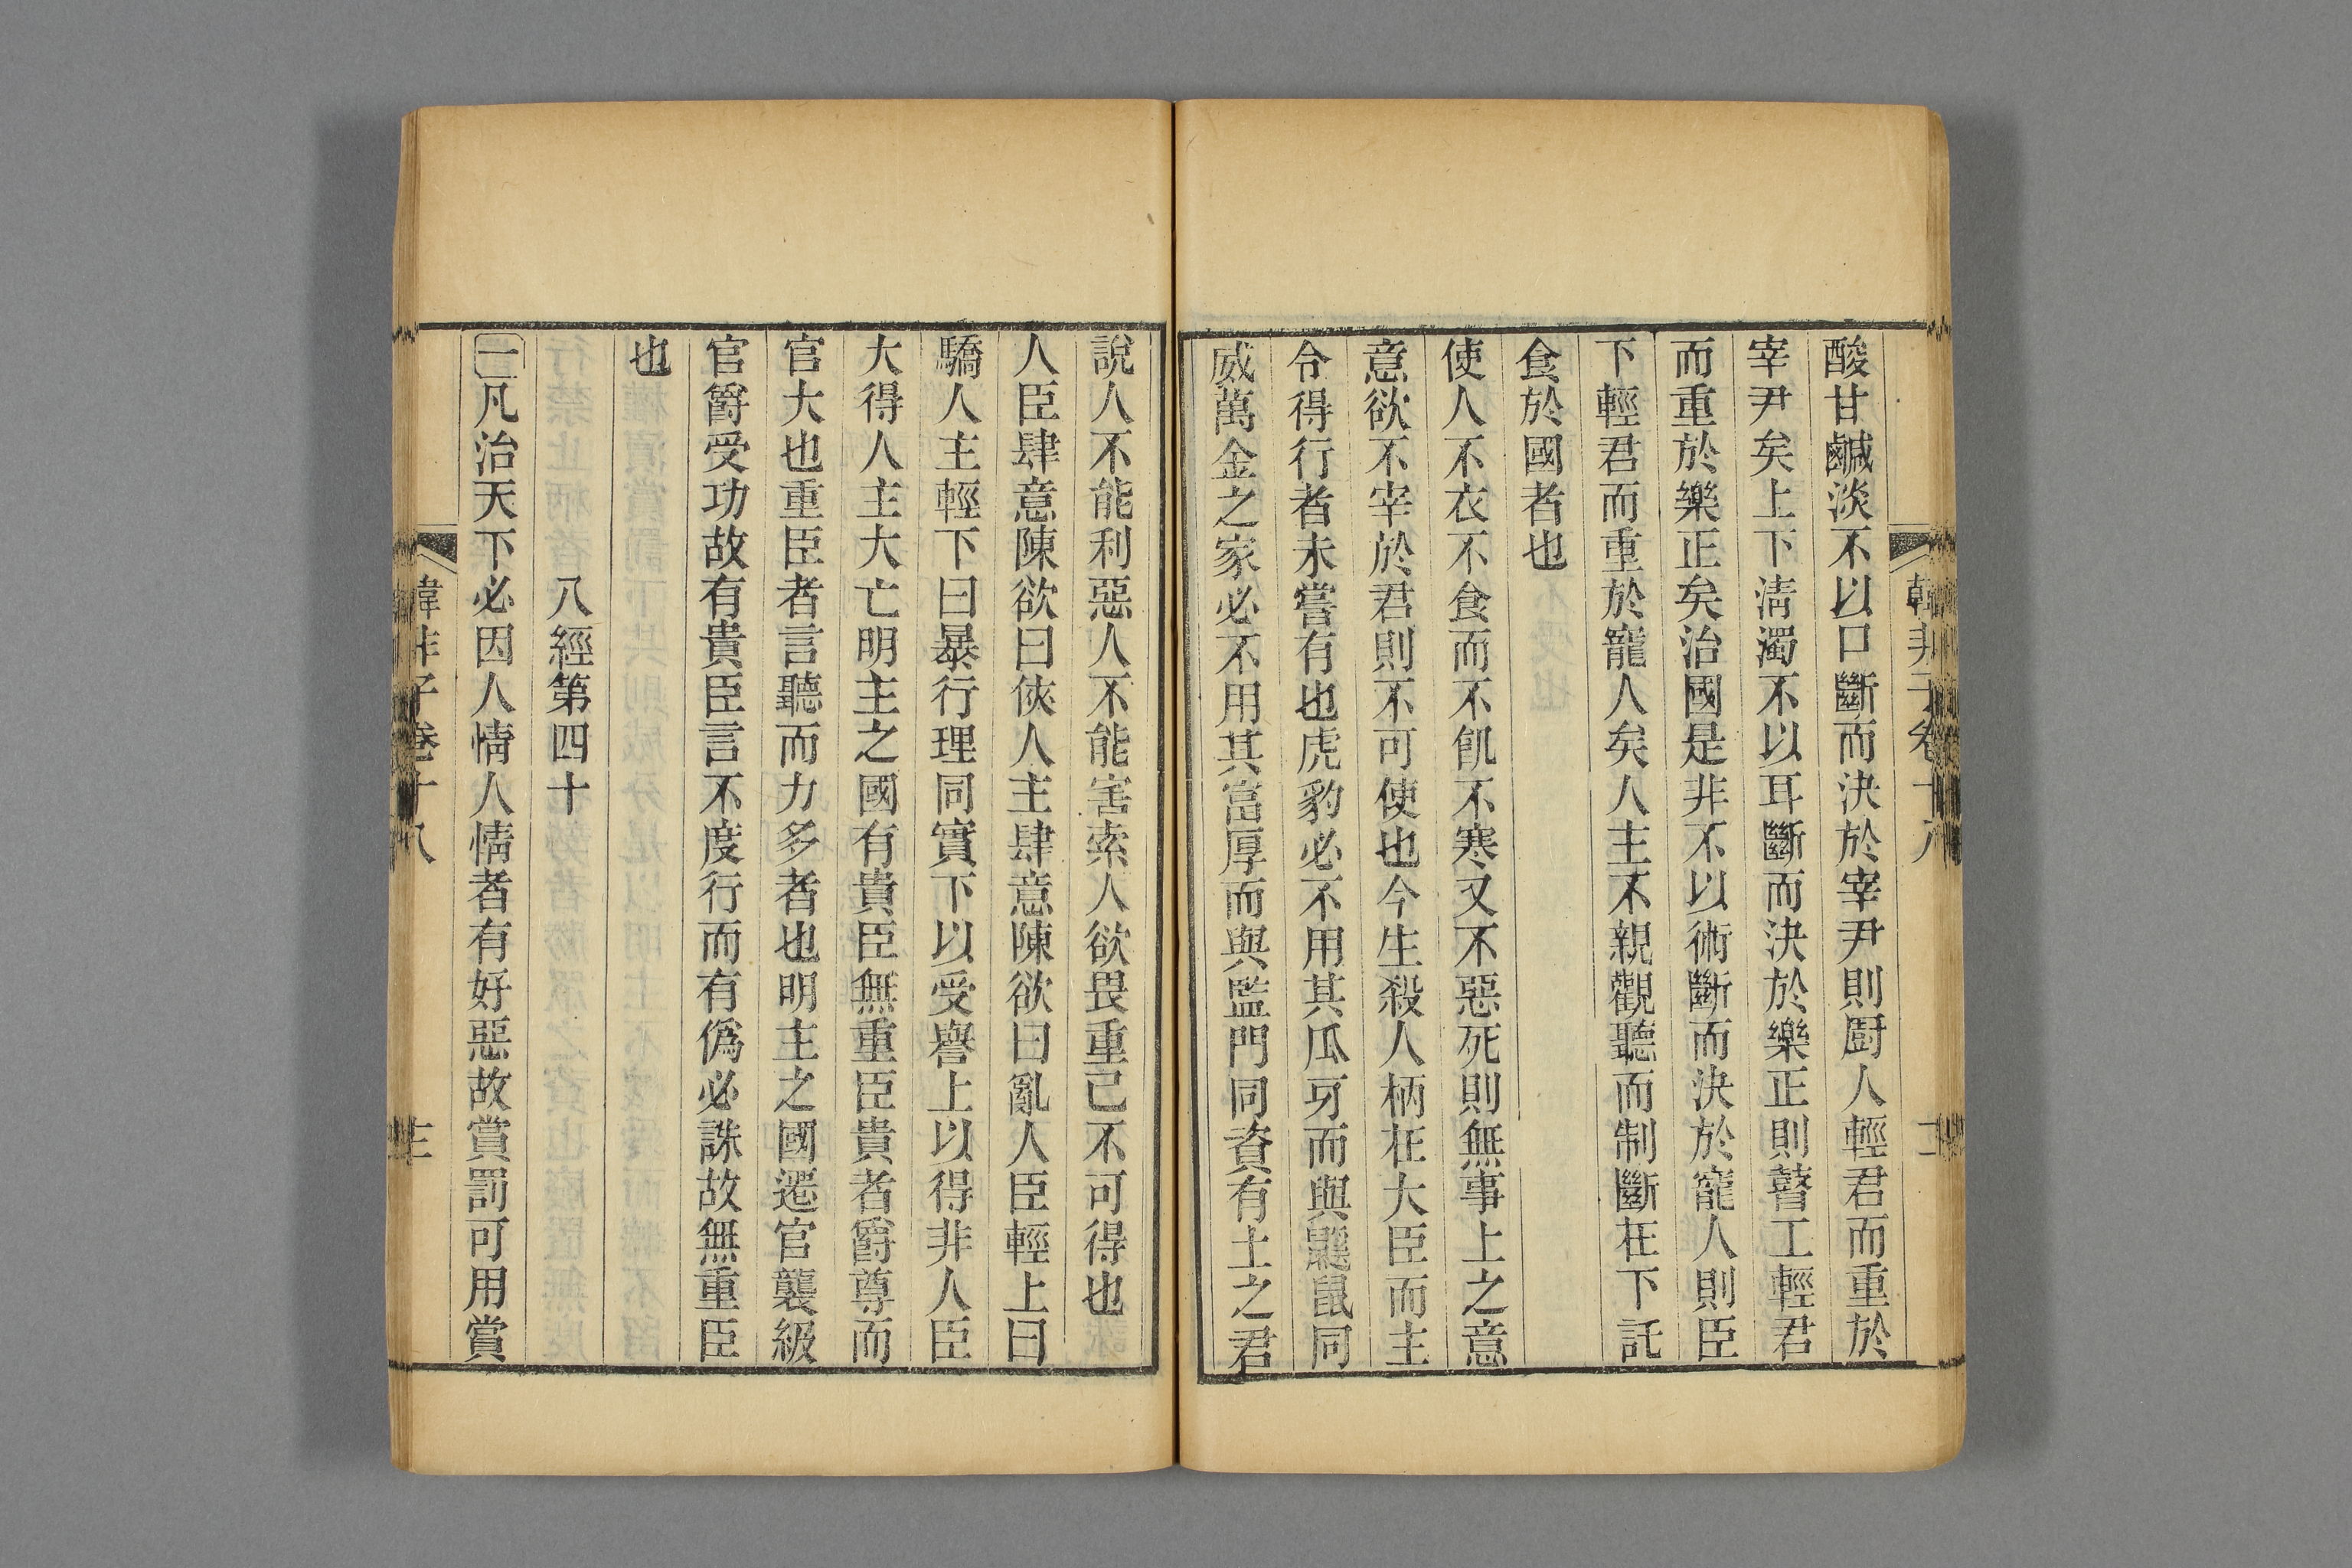 酸甘鹹淡不以口斷而決於宰尹則厨人輕君而重於
宰尹矣上下清濁不以耳斷而決於樂正則瞽工輕君
而重於樂正矣治國是非不以術斷而決於寵人則臣
下輕君而重於寵人矣人主不親觀聽而制斷在下託
食於國者也
使人不衣不食而不飢不寒又不惡死則無事上之意
意欲不宰於君則不可使也今生殺人柄在大臣而主
令得行者未嘗有也虎豹必不用其瓜牙而與鼷鼠同
威萬金之家必不用其富厚而與監門同資有土之君
說人不能利惡人不能害索人欲畏重己不可得也
人臣肆意陳欲曰俠人主肆意陳欲曰亂人臣輕上曰
驕人主輕下曰暴行理同實下以受譽上以得非人臣
大得人主大亡明主之國有貴臣無重臣貴者爵尊而
官大也重臣者言聽而力多者也明主之國遷官襲級
官爵受功故有貴臣言不度行而有僞必誅故無重臣
也
八經第四十
一凡治天下必因人情人情者有好惡故賞罰可用賞
韓非子卷十八